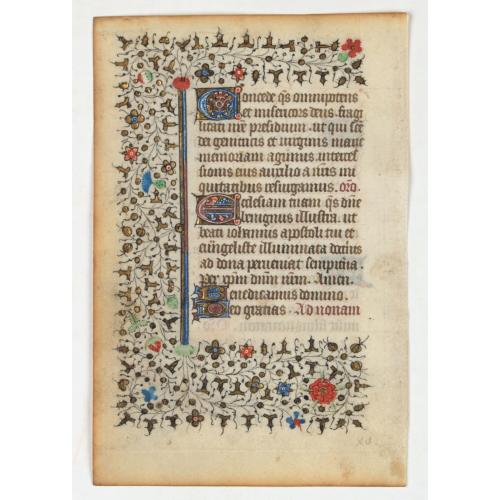 Concede qs omnipotens
et misericors deus. fragi
litati nre presidium. ut qui sce
dei genitricis et virginis marie
memoriam agimus. interces
sionis eius auxilio a nris ini
quitatibus resurgamus. Oro.
Ecclesiam tuam qs dne
benignus illustra. ut
beati iohannis apostoli tui et
euangeliste illuminata doctrinis
ad dona perveniat sempiterna.
Per xpm dnm nrm. Amen.
Benedicamus domino.
Deo gratias. Ad nonam